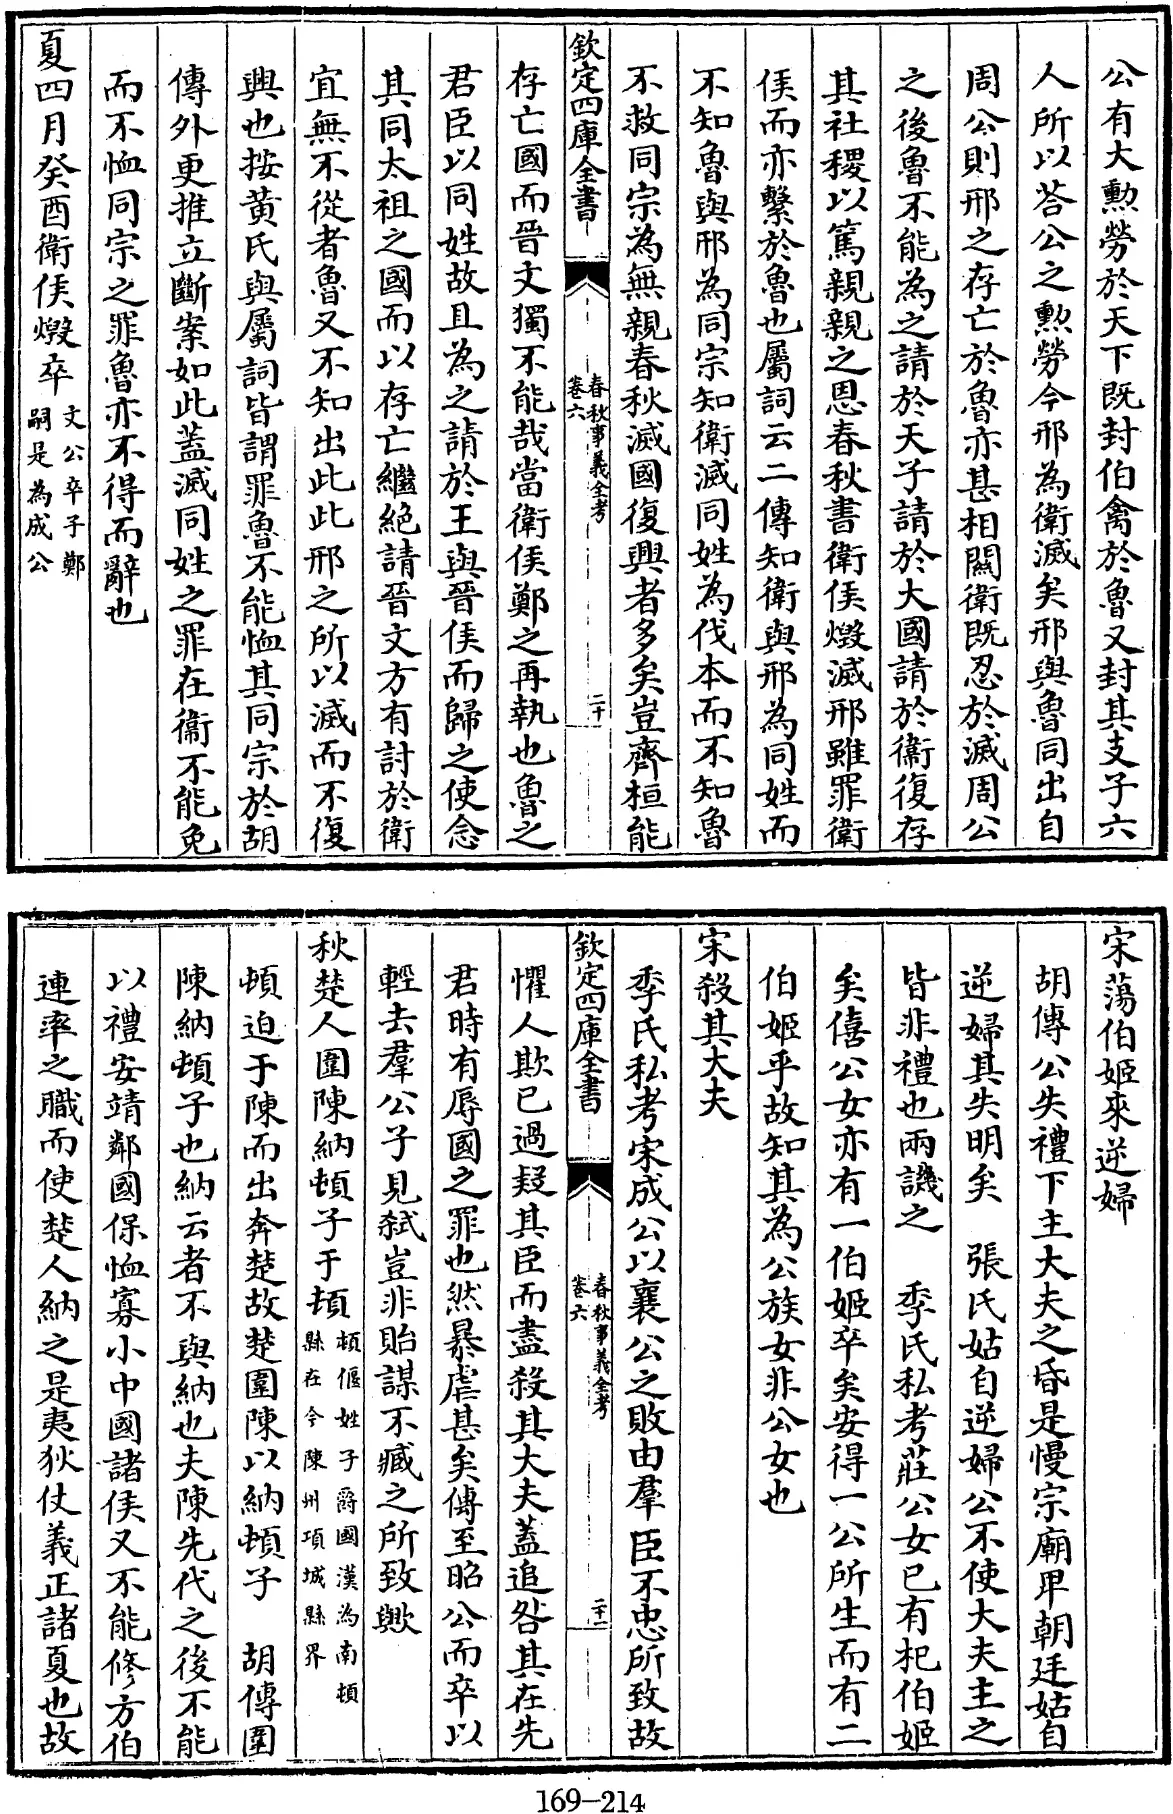 公有大勲勞於天下既封伯禽於魯又封其支子六
人所以答公之勲勞今邢為衛滅矣邢與魯同出自
周公則邢之存亡於魯亦甚相闗衛既忍於滅周公
之後魯不能為之請於天子請於大國請於衛復存
其社稷以篤親親之恩春秋書衛侯燬滅邢雖罪衛
侯而亦繫於魯也屬詞云二傳知衛與邢為同姓而
不知魯與邢為同宗知衛滅同姓為伐本而不知魯
不救同宗為無親春秋滅國復興者多矣豈齊桓能
欽定四庫全書
春秋事義全考
卷六
二十
存亡國而晉文獨不能哉當衛侯鄭之再執也魯之
君臣以同姓故且為之請於王與晉侯而歸之使念
其同太祖之國而以存亡繼絕請晉文方有討於衛
宜無不從者魯又不知出此此邢之所以滅而不復
興也按黄氏與屬詞皆謂罪魯不能恤其同宗於胡
傳外更推立斷案如此蓋滅同姓之罪在衛不能免
而不恤同宗之罪魯亦不得而辭也
夏四月癸酉衛侯燬卒
文公卒子鄭
嗣是為成公
宋蕩伯姬來逆婦
胡傳公失禮下主大夫之昏是慢宗廟卑朝廷姑自
逆婦其失明矣　張氏姑自逆婦公不使大夫主之
皆非禮也兩譏之　季氏私考莊公女已有杞伯姬
矣僖公女亦有一伯姬卒矣安得一公所生而有二
伯姬乎故知其為公族女非公女也
宋殺其大夫
季氏私考宋成公以襄公之敗由羣臣不忠所致故
欽定四庫全書
春秋事義全考
卷六
二十一
懼人欺已過疑其臣而盡殺其大夫蓋追咎其在先
君時有辱國之罪也然暴虐甚矣傳至昭公而卒以
輕去羣公子見弑豈非貽謀不臧之所致歟
秋楚人圍陳納頓子于頓
頓偃姓子爵國漢為南頓
縣在今陳州項城縣界
頓迫于陳而出奔楚故楚圍陳以納頓子　胡傳圍
陳納頓子也納云者不與納也夫陳先代之後不能
以禮安靖鄰國保恤寡小中國諸侯又不能修方伯
連率之職而使楚人納之是夷狄仗義正諸夏也故
169-214